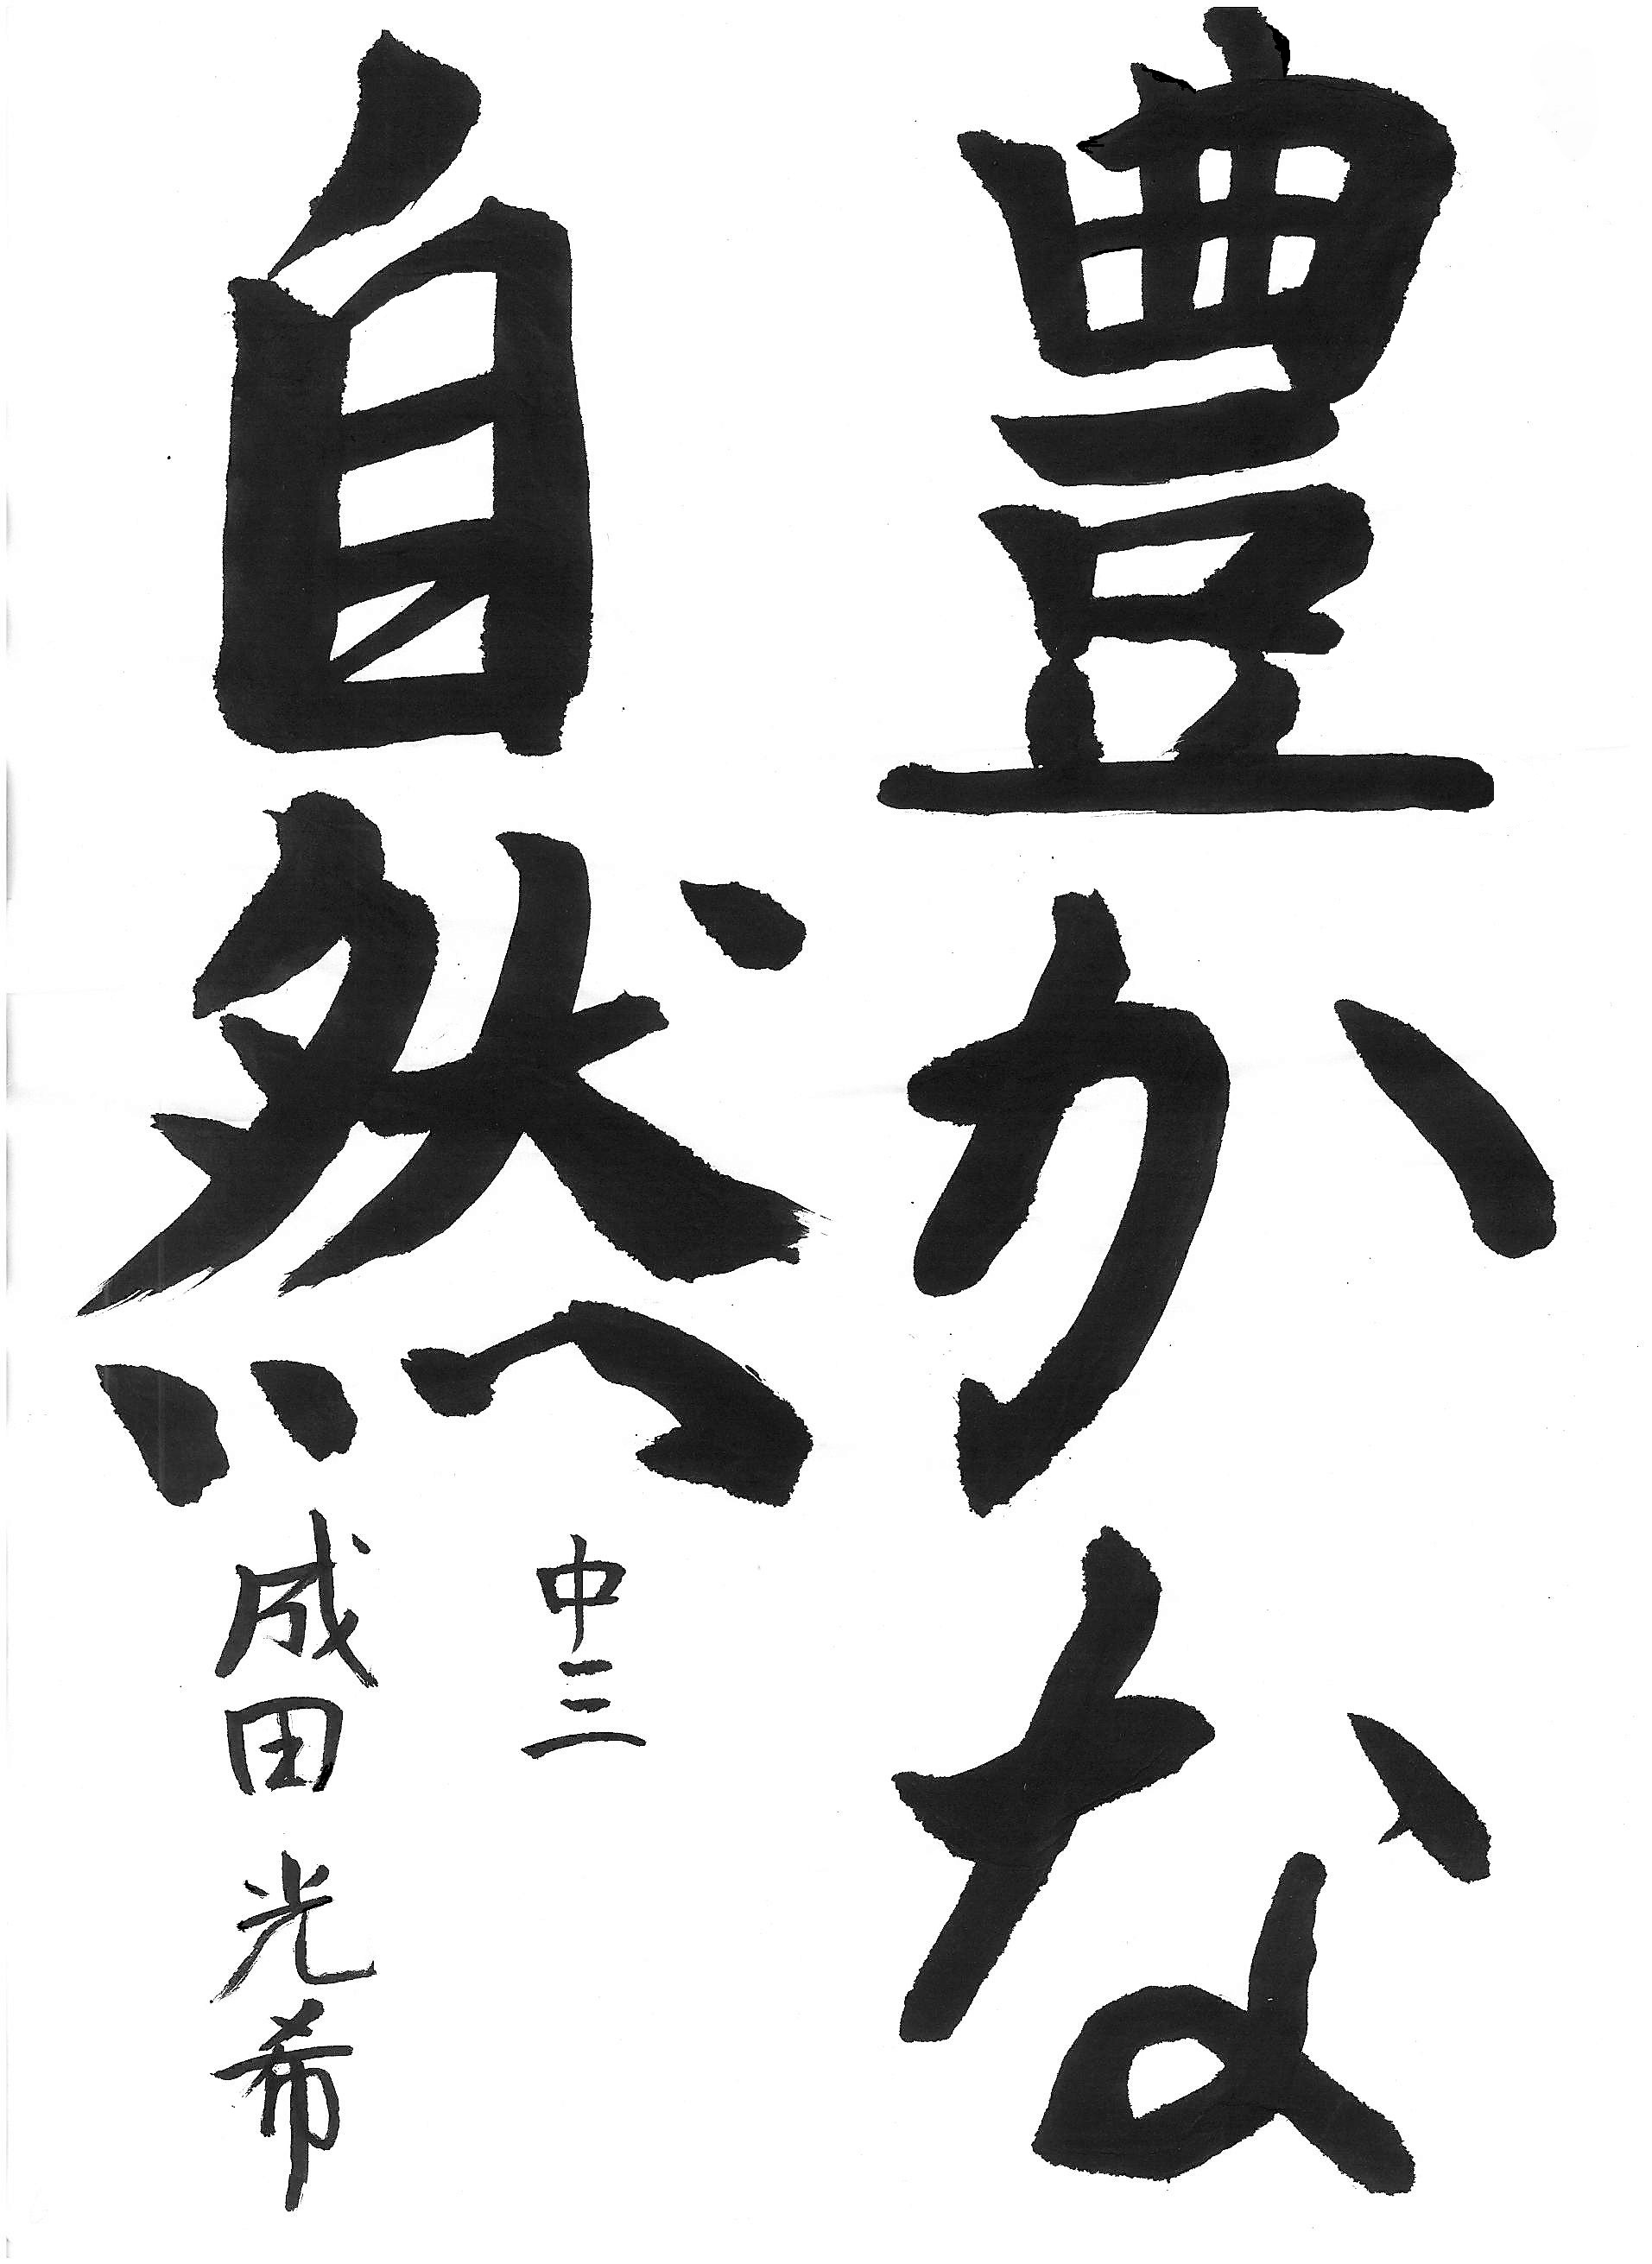 豊かな
自然
中三
成田光希